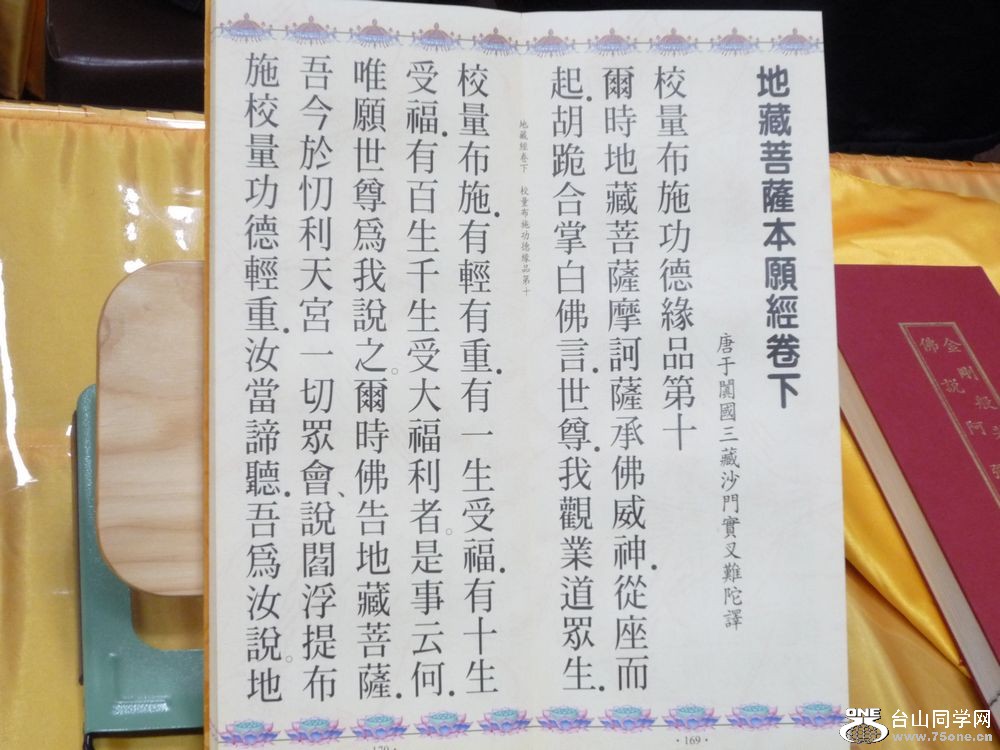 地藏菩薩本願經卷下
唐于闐國三藏沙門實叉難陀譯
校量布施功德緣品第十
爾時地藏菩薩摩訶薩承佛威神.從座而
起.胡跪合掌白佛言.世尊.我觀業道眾生.
地藏經卷下 校量布施功德緣品第十
校量布施.有輕有重.有一生受福.有十生
受福.有百生千生受大福利者。是事云何.
唯願世尊爲我說之。爾時佛告地藏菩薩.
吾今於忉利天宮一切眾會、說閻浮提布
施校量功德輕重.汝當諦聽.吾爲汝說。地
·169·
170·
金剛般
佛說阿
ONE
台山同学网
www.75one.cn